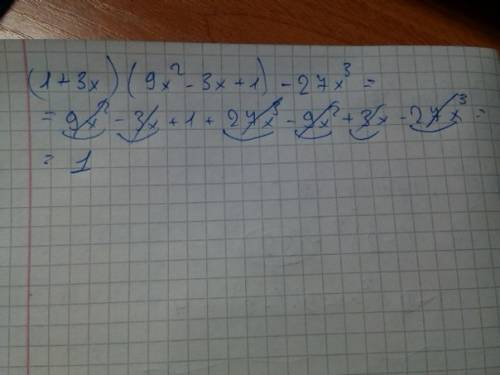 (1+3x)(9x²-3x+1)-27x³=
=9x²-3x+1+27x³-9x²+3x-27x³=
=1